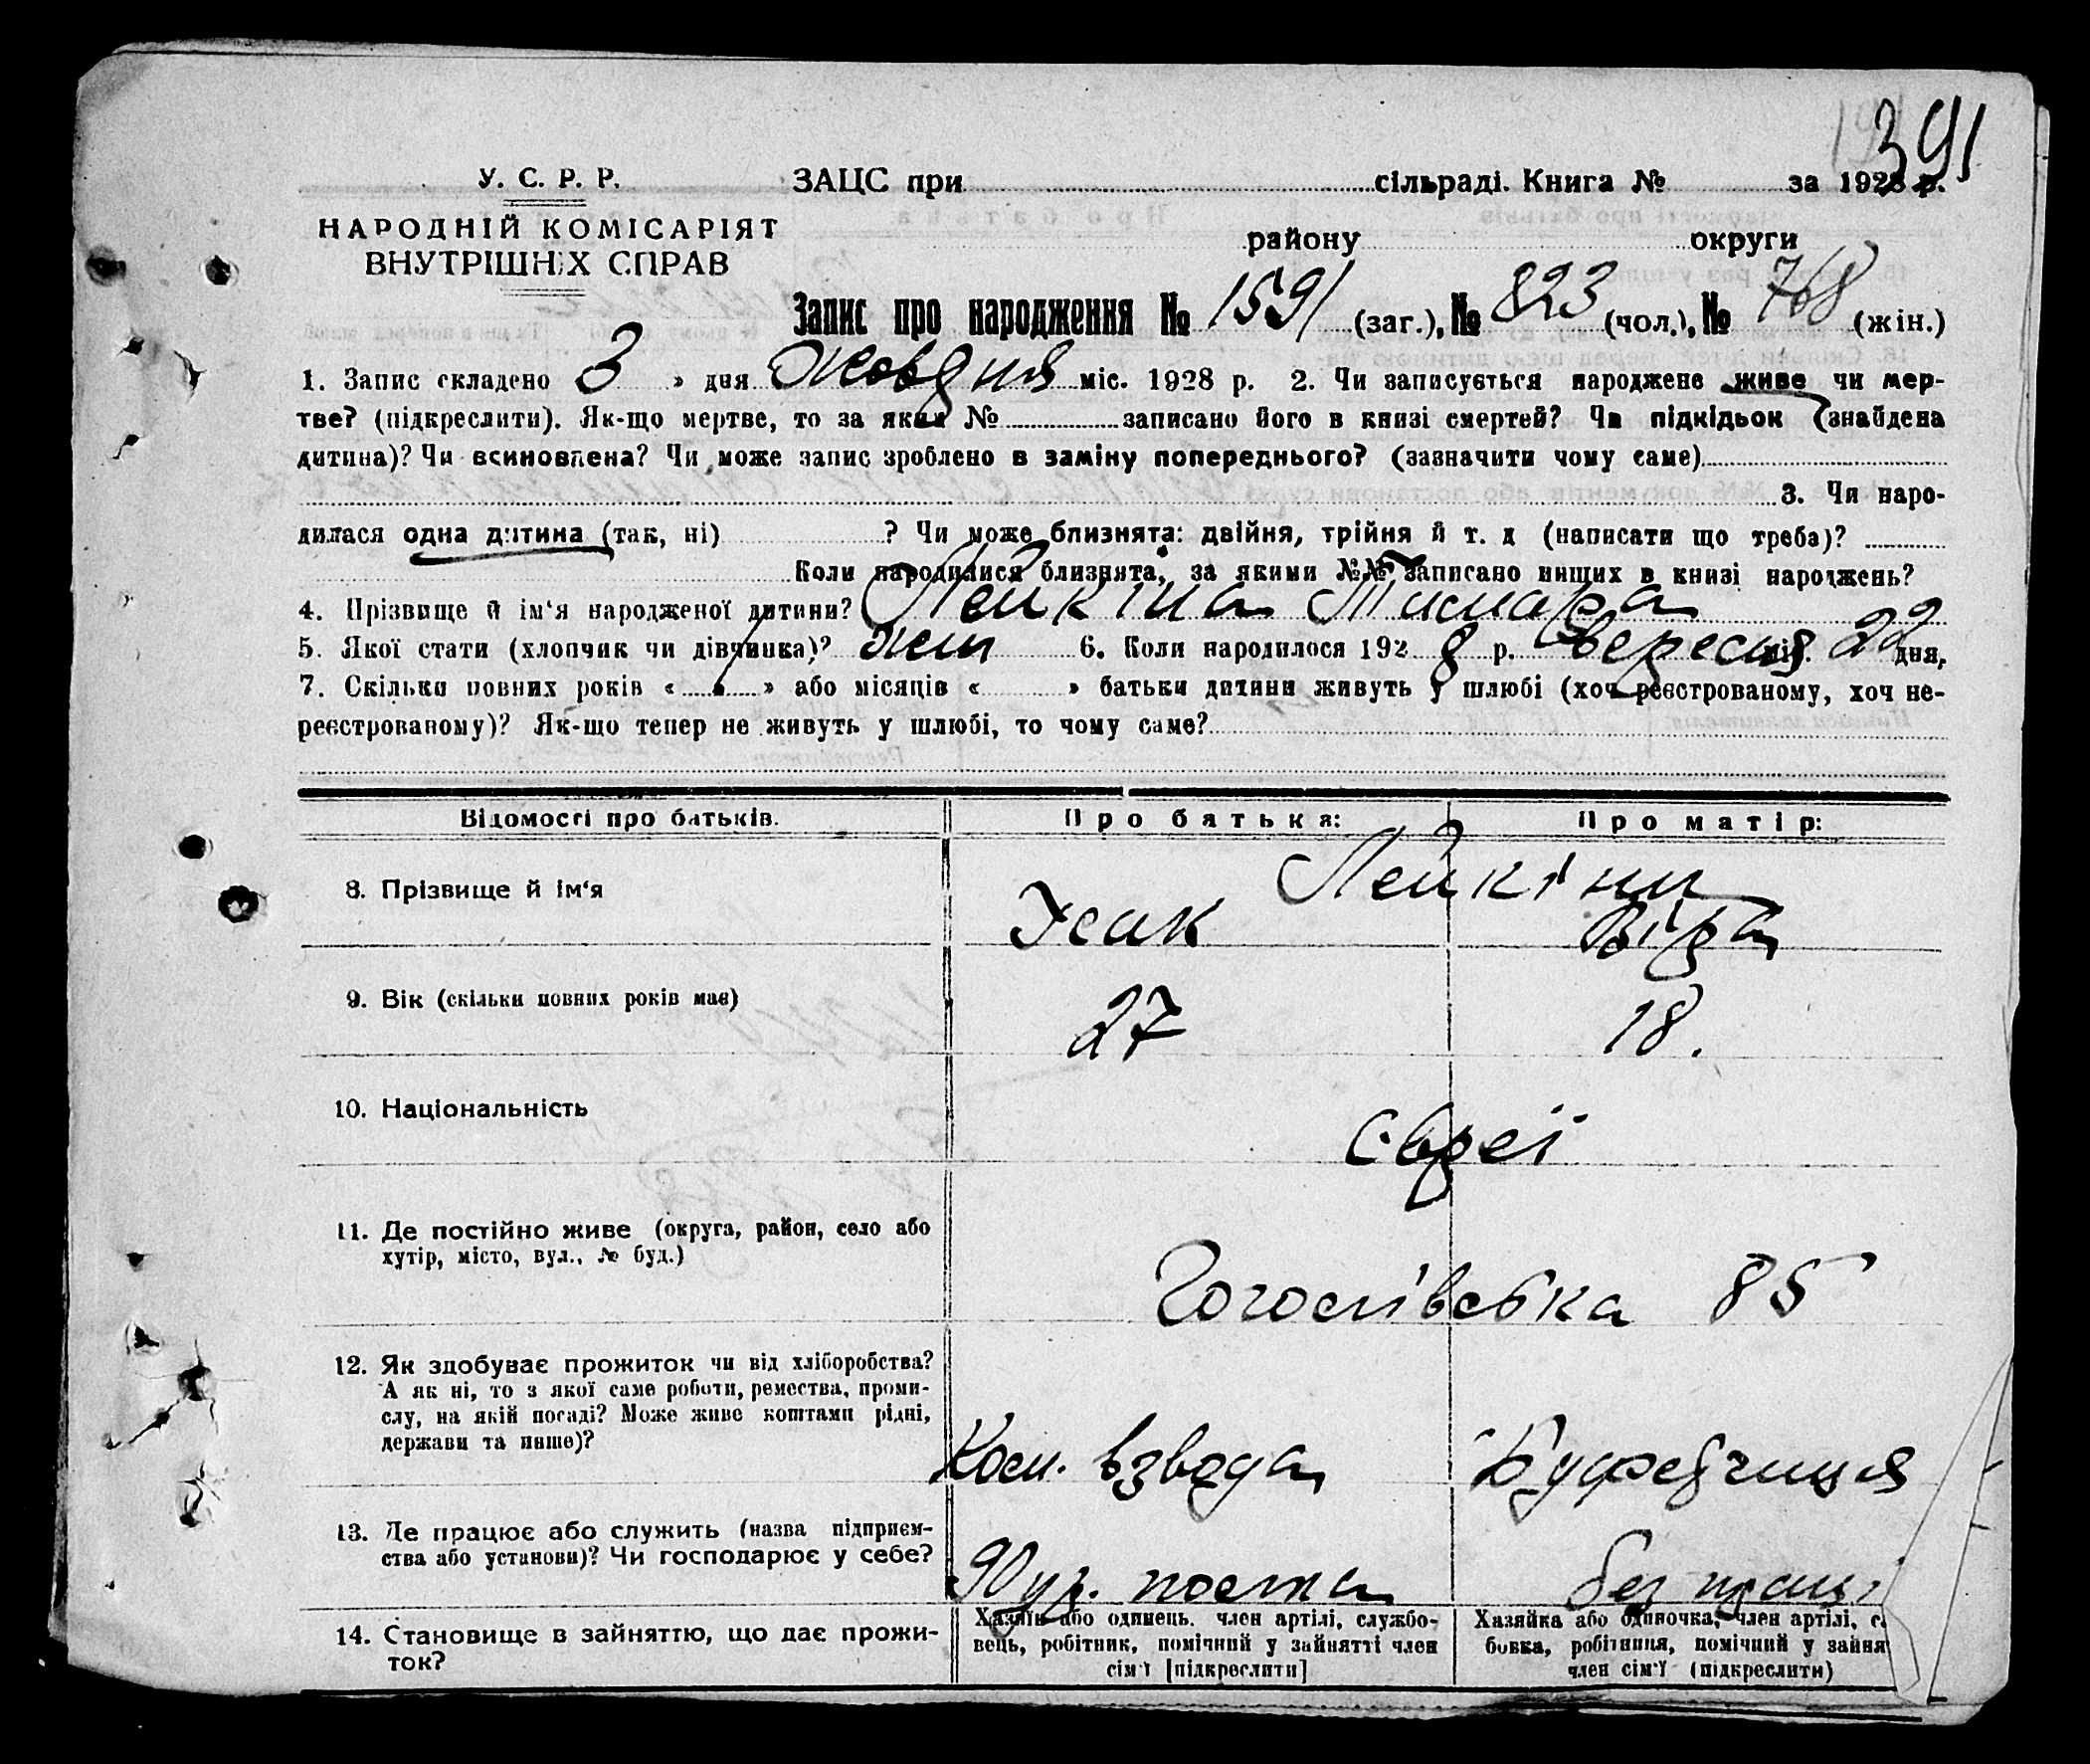 391
У. С. Р. Р. ЗАЦС при сільраді. Книга № за 1928 р.
НАРОДНІЙ КОМІСАРІЯТ
ВНУТРІШНІХ СПРАВ
району округи
Запис про народження № 1591 (заг.), № 823 (чол.), № 768 (жін.)
1. Запис складено 3 » дня Жовдня міс. 1928 р. 2. Чи записується народжене живе чи мер-
тве? (підкреслити). Як-що мертве, то за яким № записано його в книзі смертей? Чи підкідьок (знайдена
дитина)? Чи всиновлена? Чи може запис зроблено в заміну попереднього? (зазначити чому саме)
3. Чи наро-
дилася одна дитина (так, ні) ? Чи може близнята: двійня, трійня й т. д (написати що треба)?
Коли народилися близнята, за якими №№ записано инших в книзі народжень?
4. Прізвище й ім‘я народженої дитини? Лейкіна Тамара
5. Якої стати (хлопчик чи дівчинка)? жін 6. Коли народилося 1928 р. вересня міс. 22 дня,
7. Скільки повних років « » або місяців « » батьки дитини живуть у шлюбі (хоч реєстрованому, хоч не-
реєстрованому)? Як-що тепер не живуть у шлюбі, то чому саме?
Відомості про батьків. Про батька: Про матір:
Лейкіни
8. Прізвище й ім‘я Ісак Віра
9. Вік (скільки повних років має) 27 18.
10. Національність Євреї
11. Де постійно живе (округа, район, село або
хутір, місто, вул., № буд.)
Гоголівська 85
12. Як здобуває прожиток чи від хліборобства?
А як ні, то з якої саме роботи, ремества, проми-
слу, на якій посаді? Може живе коштами рідні,
держави та инше)?
Ком. взвода Буфетчиця
13. Де працює або служить (назва підприєм-
ства або установи)? Чи господарює у себе?
без праці
14. Становище в зайняттю, що дає прожи-
ток?
Хазяїн або одинець. член артілі, службо-
вець, робітник, помічний у зайнятті член
сім‘ї [підкреслити]
Хазяйка або одиночка, член артілі, с
бовка, робітниця, помічний у зайня
член сім‘ї (підкреслити)